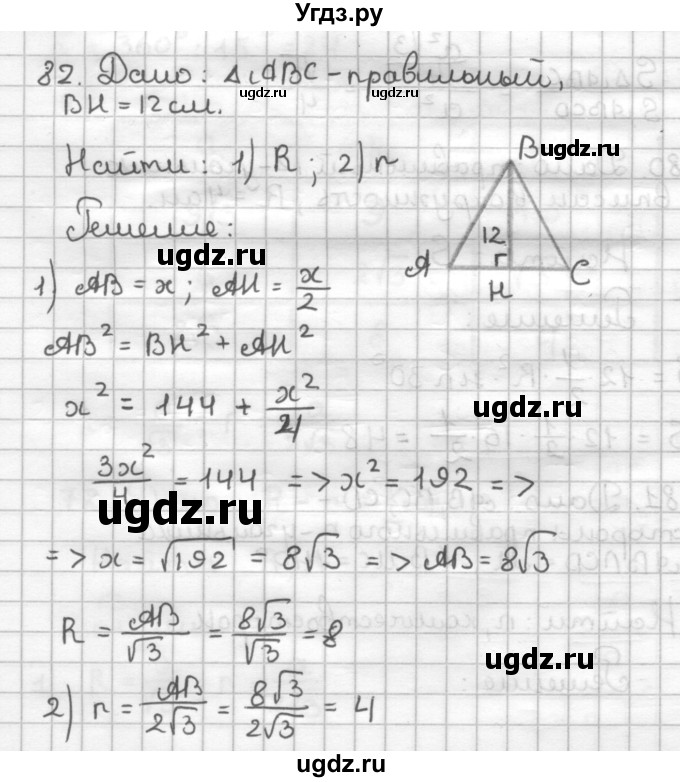 Угдз.ру
82. Дано: ΔABC - правильный,
BH = 12 см.
ugdz.ru
ugdz.ru
Найти: 1) R; 2) r
B
ugdz.ru
Решение:
ugdz.ru
12
A
C
H
1) AB = x; AH = x/2
AB² = BH² + AH²
x² = 144 + x²/4
ugdz.ru
3x²/4 = 144 => x² = 192 =>
ugdz.ru
=> x = √192 = 8√3 => AB = 8√3
R = AB/√3 = 8√3/√3 = 8
ugdz.ru
2) r = AB/2√3 = 8√3/2√3 = 4
ugdz.ru